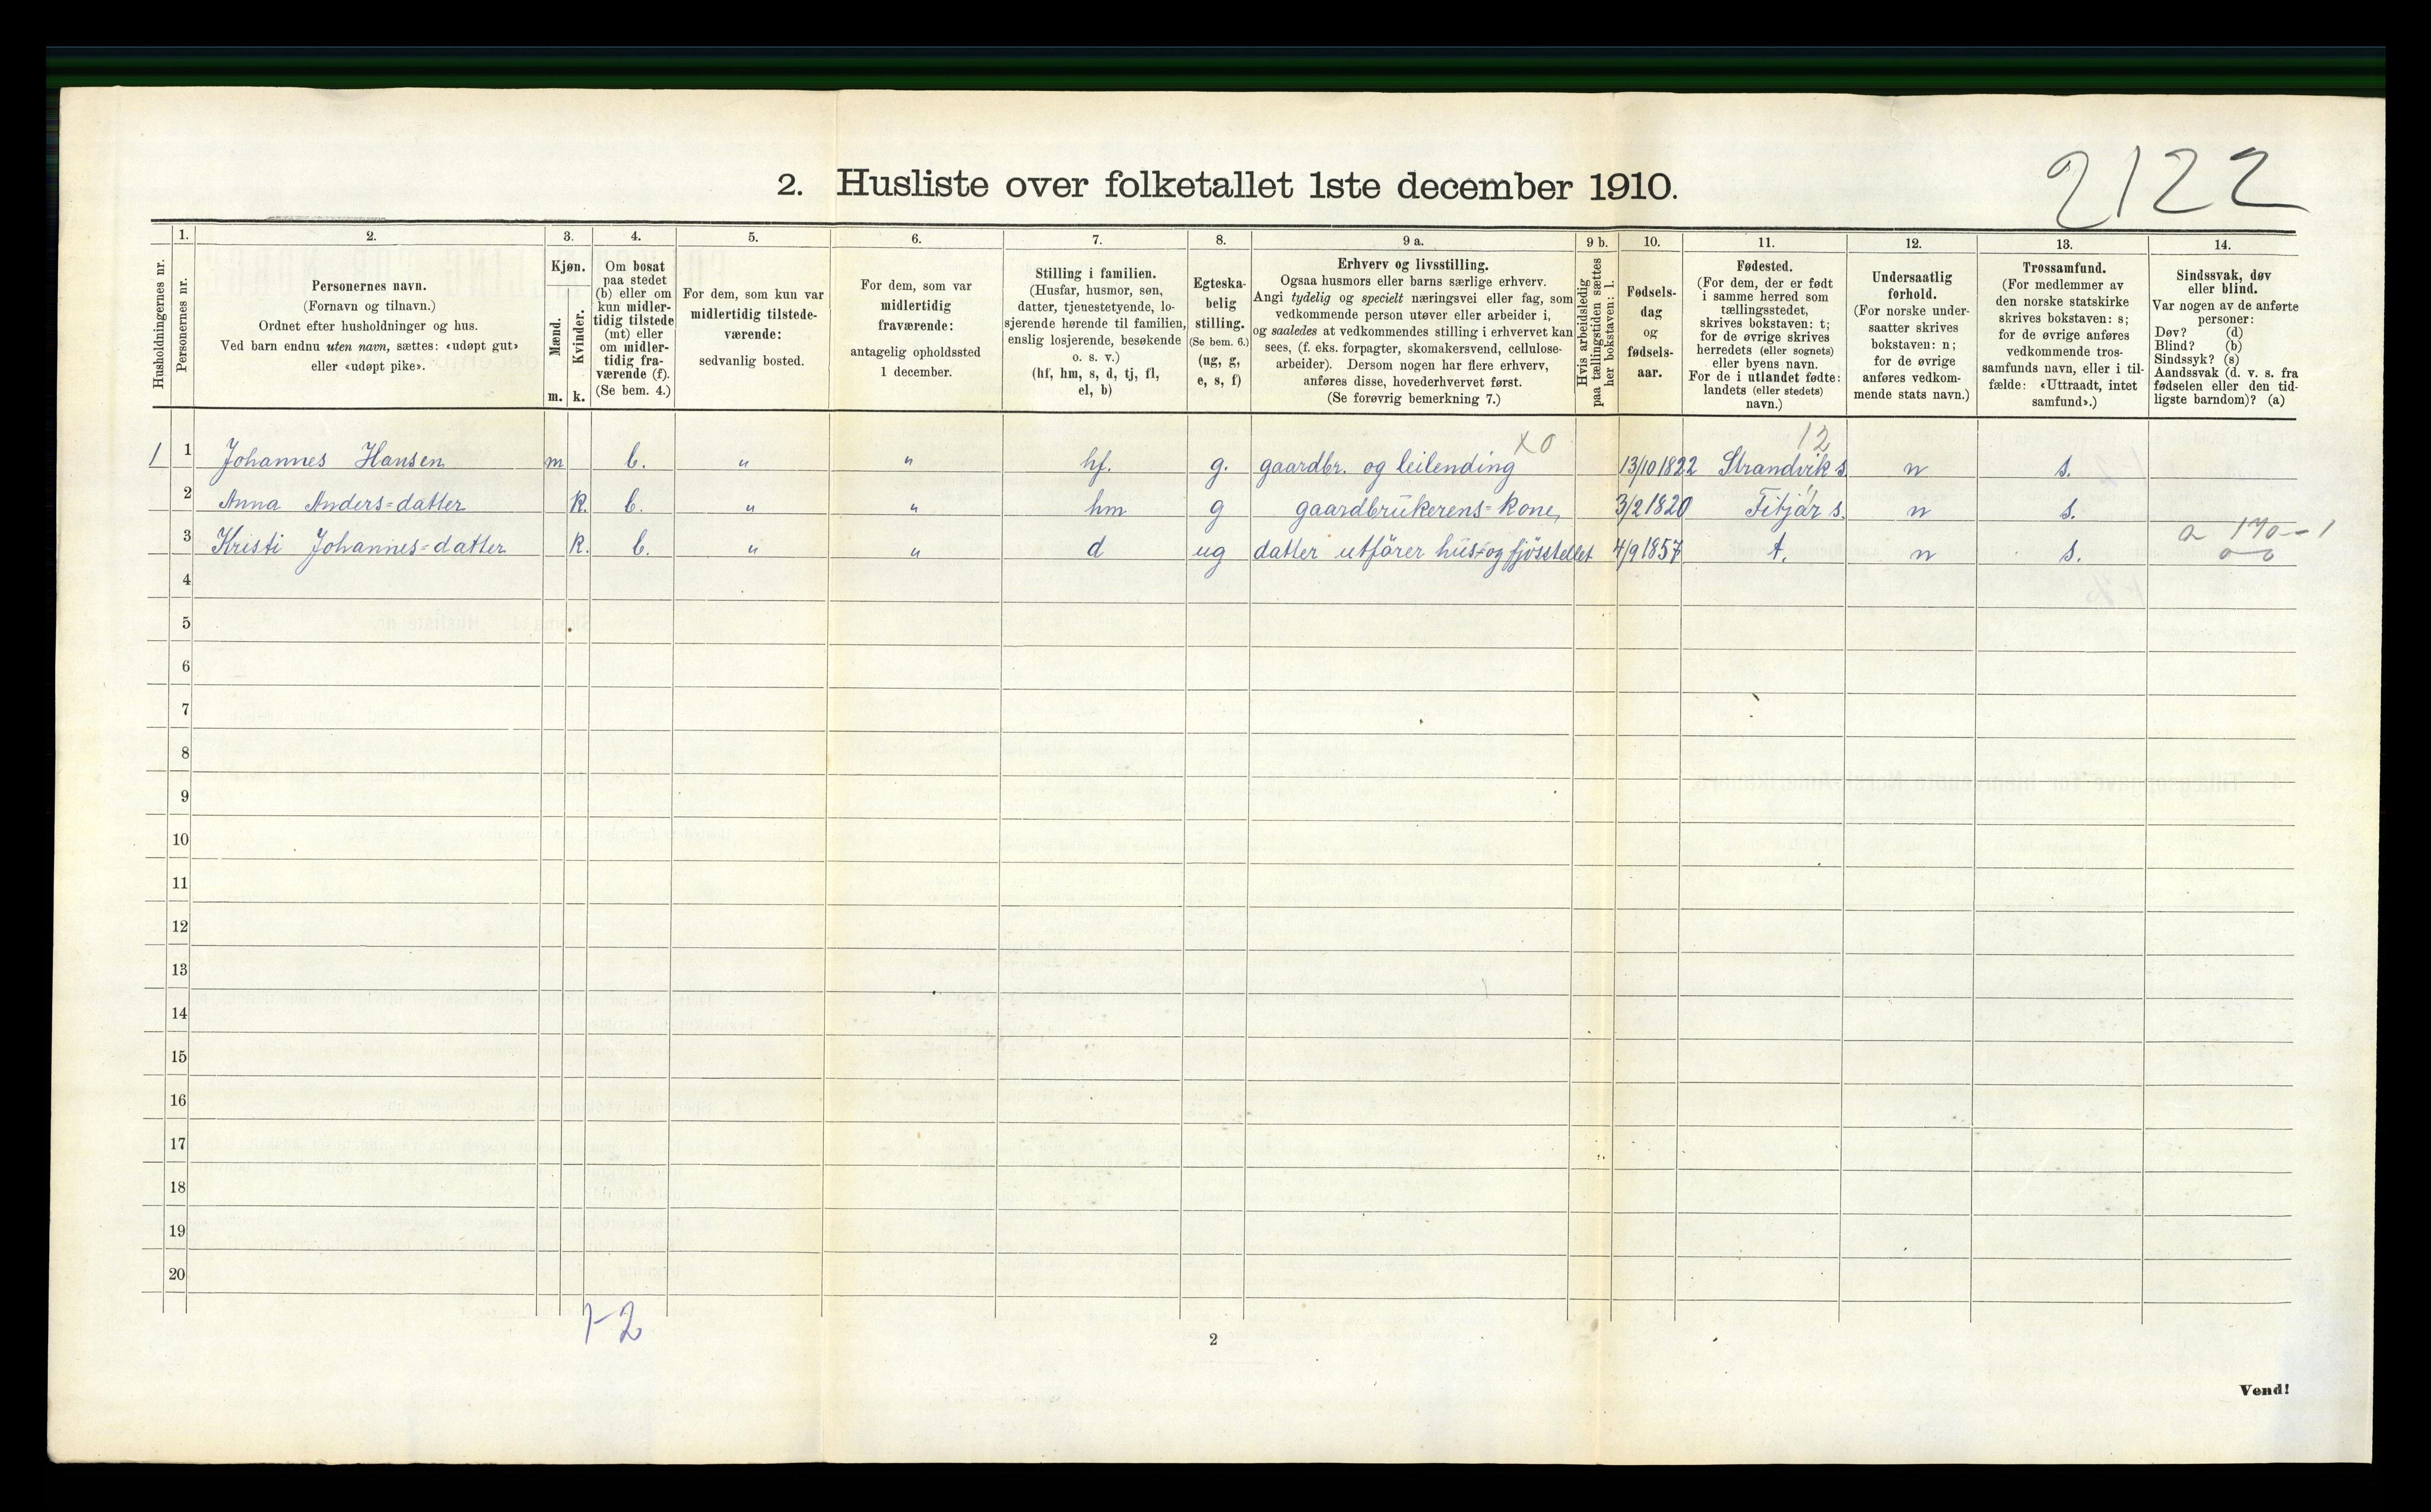 2122
2. Husliste over folketallet 1ste december 1910.
Husholdningernes nr.
1.
Personernes nr.
2.
Personernes navn.
(Fornavn og tilnavn.)
Ordnet efter husholdninger og hus.
Ved barn endnu uten navn, sættes: «udøpt gut»
eller «udøpt pike».
3.
Kjøn.
Mænd.
Kvinder.
m. k.
4.
Om bosat
paa stedet
(b) eller om
kun midler-
tidig tilstede
(mt) eller
om midler-
tidig fra-
værende (f).
(Se bem. 4.)
5.
For dem, som kun var
midlertidig tilstede-
værende:
sedvanlig bosted.
6.
For dem, som var
midlertidig
fraværende:
antagelig opholdssted
1 december.
7.
Stilling i familien.
(Husfar, husmor, søn,
datter, tjenestetyende, lo-
sjerende hørende til familien,
enslig losjerende, besøkende
o. s. v.)
(hf, hm, s, d, tj, fl,
el, b)
8.
Egteska-
belig
stilling.
(Se bem. 6.)
(ug, g,
e, s, f)
9 a.
Erhverv og livsstilling.
Ogsaa husmors eller barns særlige erhverv.
Angi tydelig og specielt næringsvei eller fag, som
vedkommende person utøver eller arbeider i,
og saaledes at vedkommendes stilling i erhvervet kan
sees, (f. eks. forpagter, skomakersvend, cellulose-
arbeider). Dersom nogen har flere erhverv,
anføres disse, hovederhvervet først.
(Se forøvrig bemerkning 7.)
9 b.
Hvis arbeidsledig
paa tællingstiden sættes
her bokstaven: l.
10.
Fødsels-
dag
og
fødsels-
aar.
11.
Fødested.
(For dem, der er født
i samme herred som
tællingsstedet,
skrives bokstaven: t;
for de øvrige skrives
herredets (eller sognets)
eller byens navn.
For de i utlandet fødte:
landets (eller stedets)
navn.)
12.
Undersaatlig
forhold.
(For norske under-
saatter skrives
bokstaven: n;
for de øvrige
anføres vedkom-
mende stats navn.)
13.
Trossamfund.
(For medlemmer av
den norske statskirke
skrives bokstaven: s;
for de øvrige anføres
vedkommende tros-
samfunds navn, eller i til-
fælde: «Uttraadt, intet
samfund».)
14.
Sindssvak, døv
eller blind.
Var nogen av de anførte
personer:
Døv? (d)
Blind? (b)
Sindssyk? (s)
Aandssvak (d. v. s. fra
fødselen eller den tid-
ligste barndom)? (a)
x0 12
1 1 Johannes Hansen m b. " " hf. g. gaardbr. og leilending 13/10 1822 Strandvik s. n s.
2 Anna Anders=datter k. b. " " hm g gaardbrukerens=kone, 3/2 1820 Fitjar s. n s.
3 Kristi Johannes=datter k. b. " " d ug datter utfører hus=og fjösstellet 4/9 1857 t. n s.
4
5
6
7
8
9
10
11
12
13
14
15
16
17
18
19
20
1-2
2
Vend!